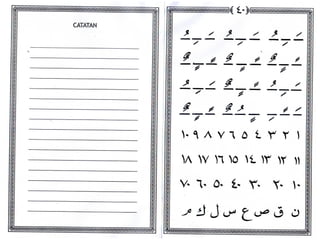 CATATAN
٤٠
١ ٢ ٣ ٤ ٥ ٦ ٧ ٨ ٩ ١٠
١١ ١٢ ١٣ ١٤ ١٥ ١٦ ١٧ ١٨
١٠ ٢٠ ٣٠ ٤٠ ٥٠ ٦٠ ٧٠
ن ق ص ع س ل ك م